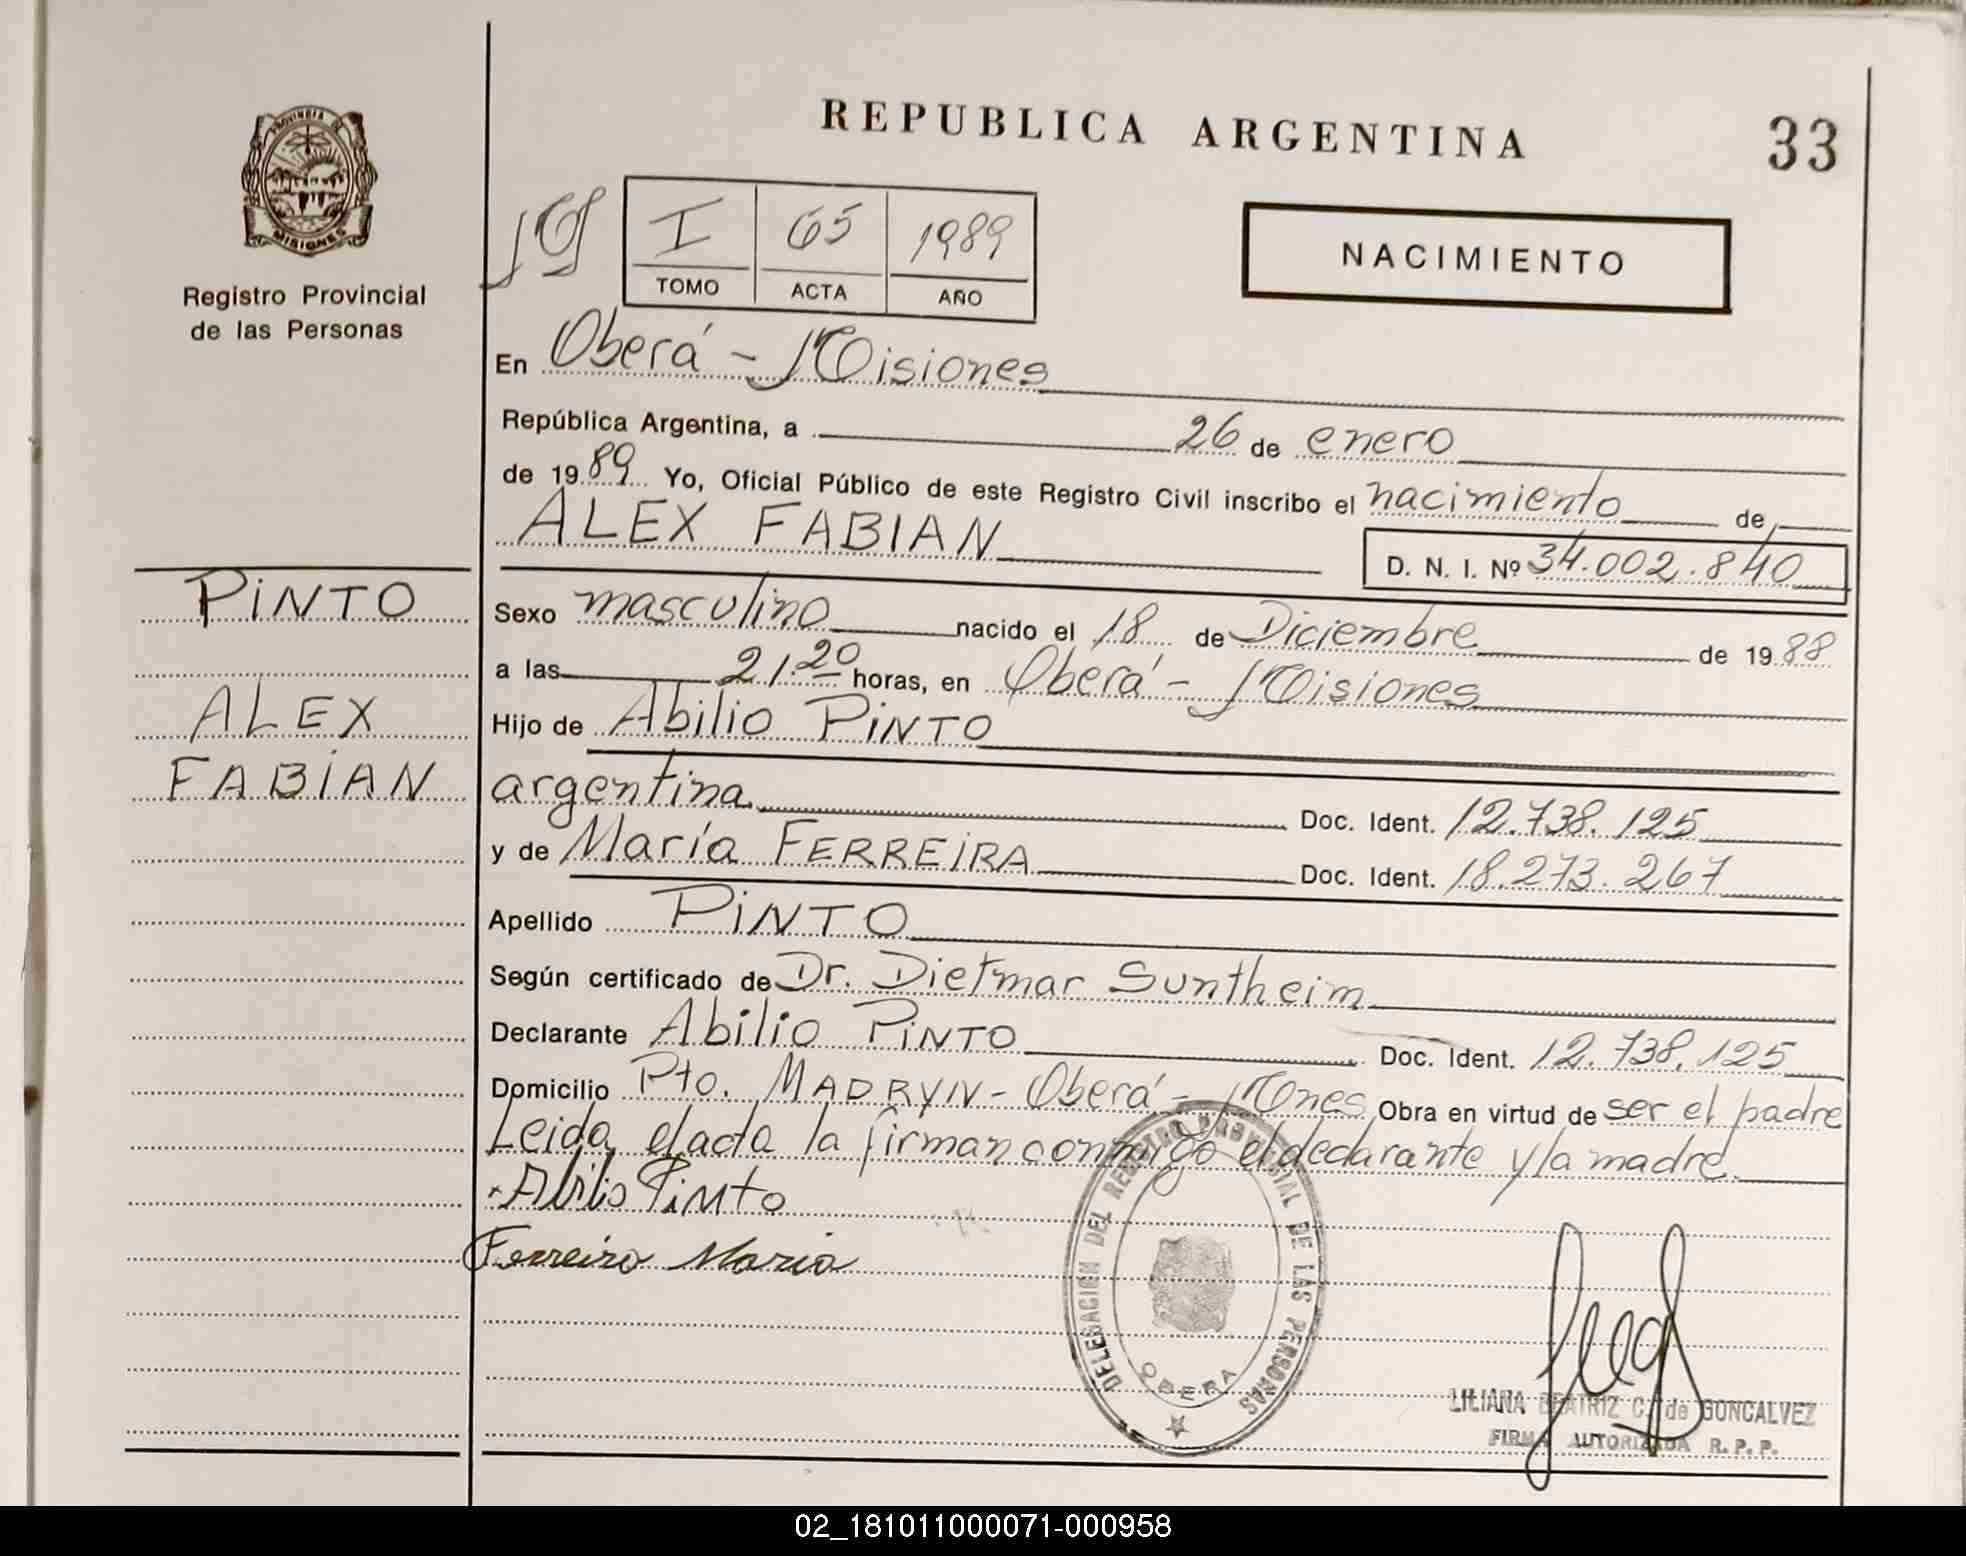 REPUBLICA ARGENTINA
33
PROVINCIA DE
MISIONES
Registro Provincial
de las Personas
I 65 1989
TOMO ACTA AÑO
NACIMIENTO
En Oberá - Misiones
República Argentina, a 26 de enero
de 1989 Yo, Oficial Público de este Registro Civil inscribo el nacimiento de
ALEX FABIAN
D. N. I. Nº 34.002.840
PINTO
ALEX
FABIAN
Sexo masculino nacido el 18 de Diciembre de 1988
a las 21.20 horas, en Oberá - Misiones
Hijo de Abilio PINTO
argentina Doc. Ident. 12.738.125
y de María FERREIRA Doc. Ident. 18.273.267
Apellido PINTO
Según certificado de Dr. Dietmar Suntheim
Declarante Abilio PINTO Doc. Ident. 12.738.125
Domicilio Pto. MADRYN - Oberá - Mnes Obra en virtud de ser el padre
Leida el acta la firman conmigo el declarante y la madre.
Abilio Pinto
Ferreira Maria
DELEGACION DEL REGISTRO PROVINCIAL DE LAS PERSONAS
OBERA
LILIANA BEATRIZ C. de GONCALVEZ
FIRMA AUTORIZADA R. P. P.
02_181011000071-000958